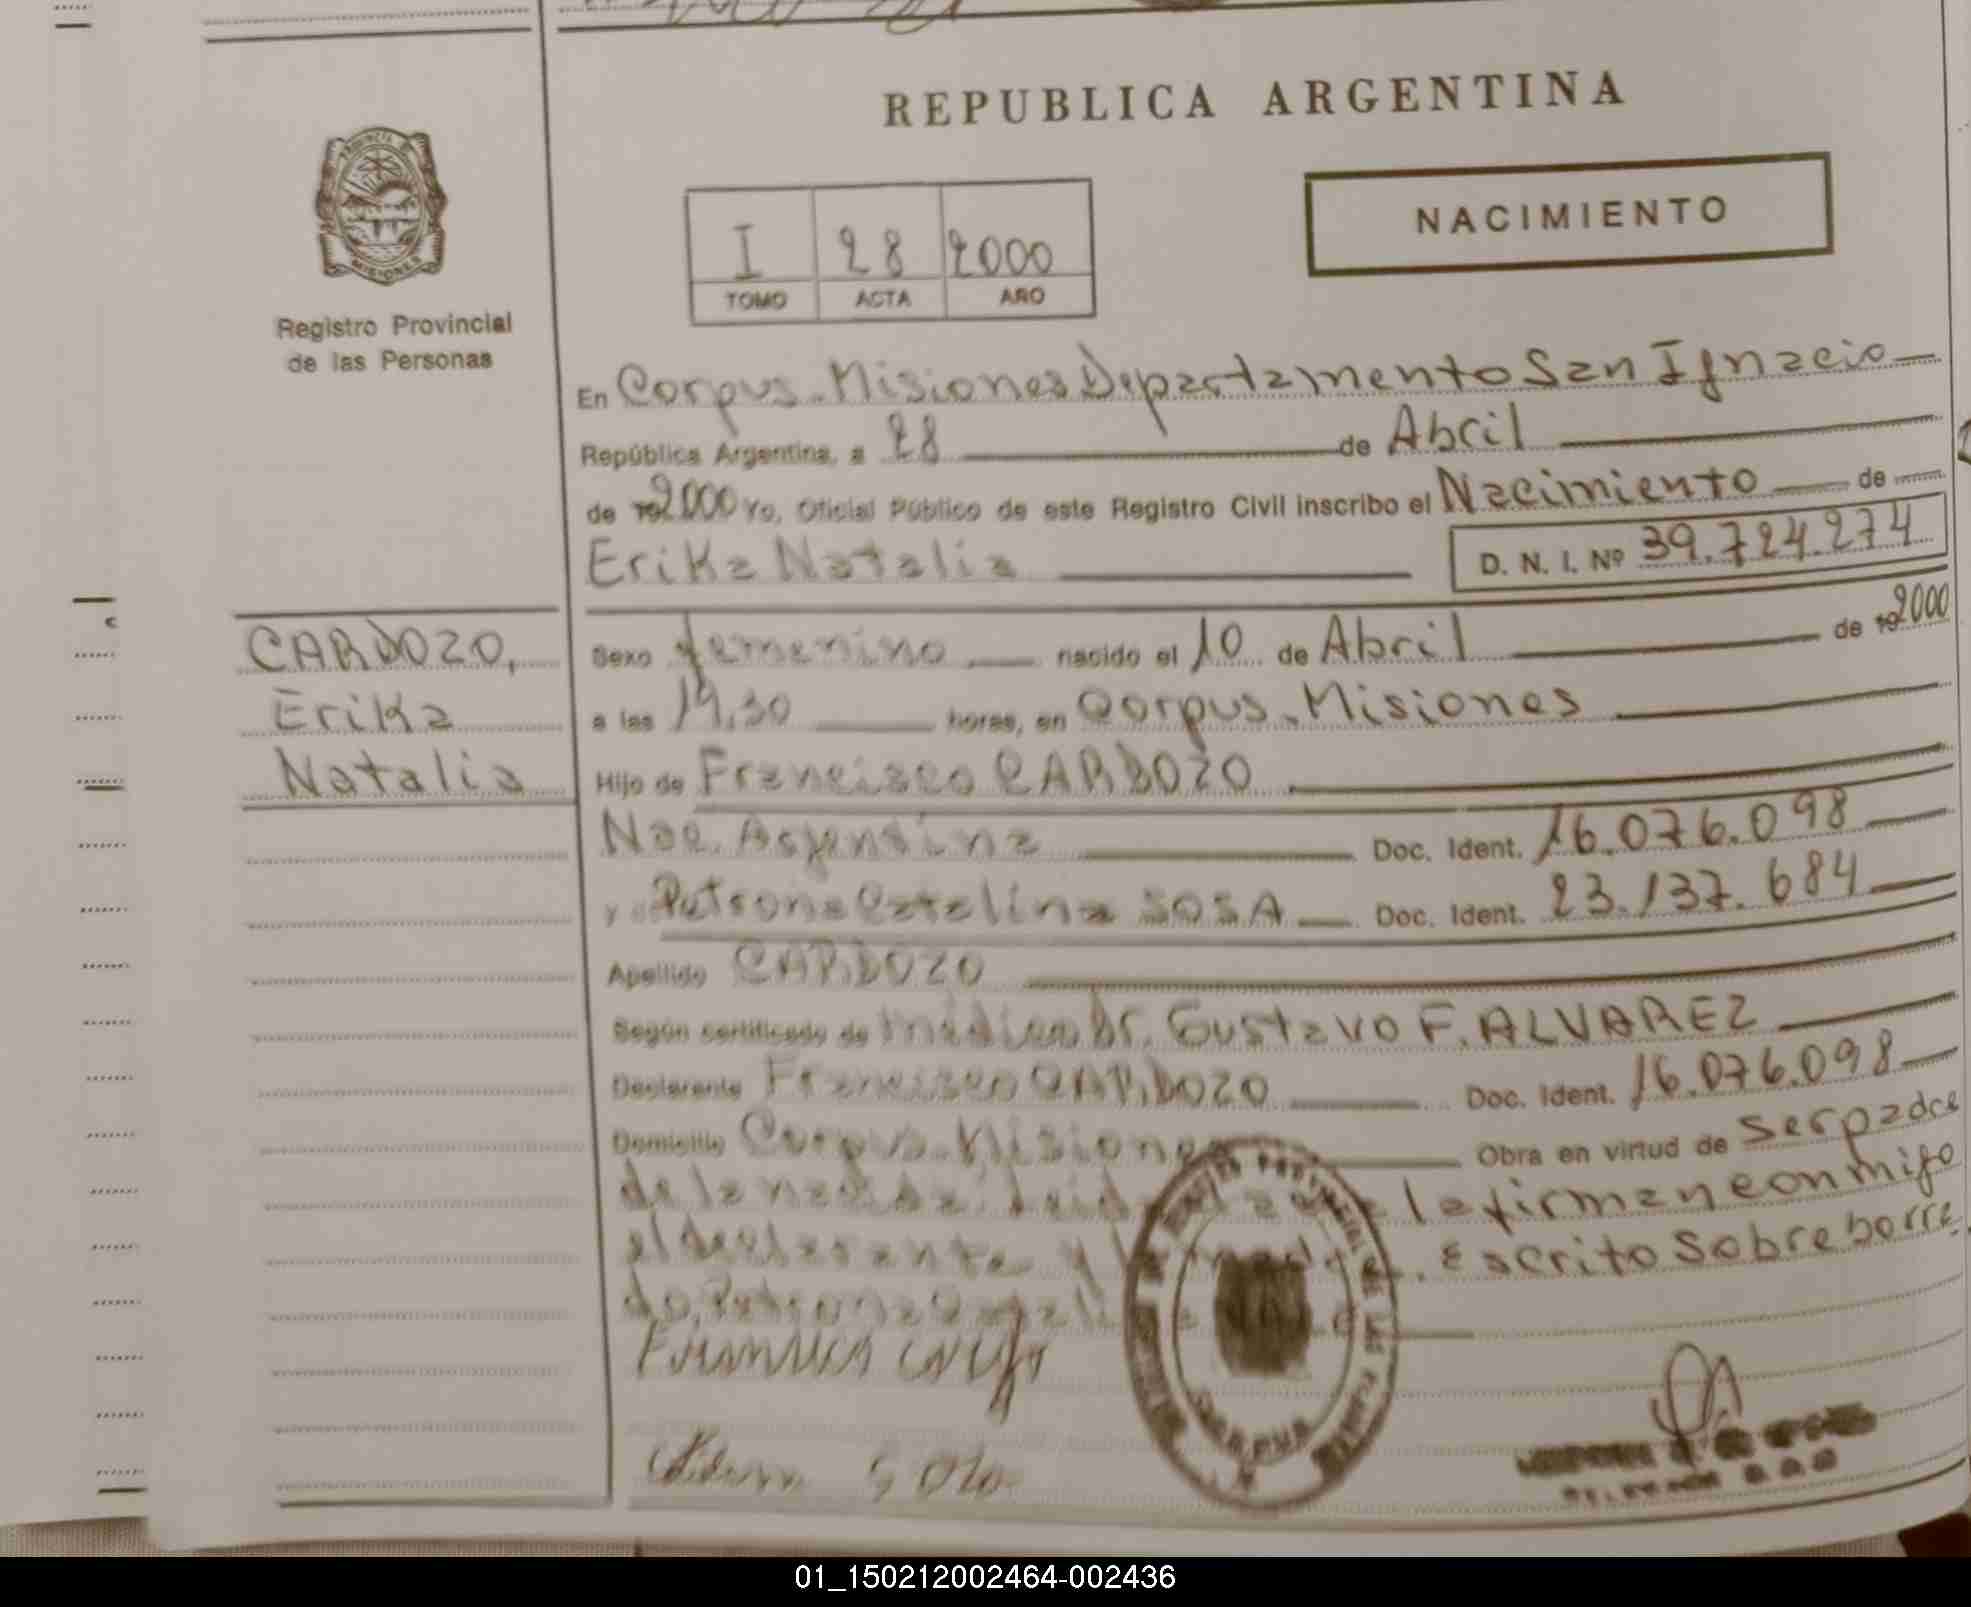 REPUBLICA ARGENTINA
NACIMIENTO
I 28 2000
TOMO ACTA AÑO
PROVINCIA DE
MISIONES
Registro Provincial
de las Personas
En Corpus-Misiones Departamento San Ignacio
República Argentina, a 28 de Abril
de 19 2000 Yo, Oficial Público de este Registro Civil inscribo el Nacimiento de
Erika Natalia D. N. I. Nº 39.724.274
CARDOZO,
Erika
Natalia
Sexo femenino nacido el 10 de Abril de 19 2000
a las 19,30 horas, en Corpus-Misiones
Hijo de Francisco CARDOZO
Nac. Argentina Doc. Ident. 16.076.098
y Petrona Catalina SOSA Doc. Ident. 23.137.684
Apellido CARDOZO
Según certificado de médico Dr. Gustavo F. ALVAREZ
Declarante Francisco CARDOZO Doc. Ident. 16.076.098
Domicilio Corpus-Misiones Obra en virtud de ser padre
de la nacida. Leida el acta la firman conmigo
el declarante y la madre. Escrito sobre borra
do, Petrona Catalina
CORPUS
01_150212002464-002436